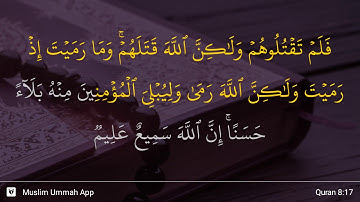 فَلَمْ تَقْتُلُوهُمْ وَلَٰكِنَّ ٱللَّهَ قَتَلَهُمْ ۚ وَمَا رَمَيْتَ إِذْ
رَمَيْتَ وَلَٰكِنَّ ٱللَّهَ رَمَىٰ وَلِيُبْلِىَ ٱلْمُؤْمِنِينَ مِنْهُ بَلَآءً
حَسَنًا ۚ إِنَّ ٱللَّهَ سَمِيعٌ عَلِيمٌ
Muslim Ummah App
Quran 8:17